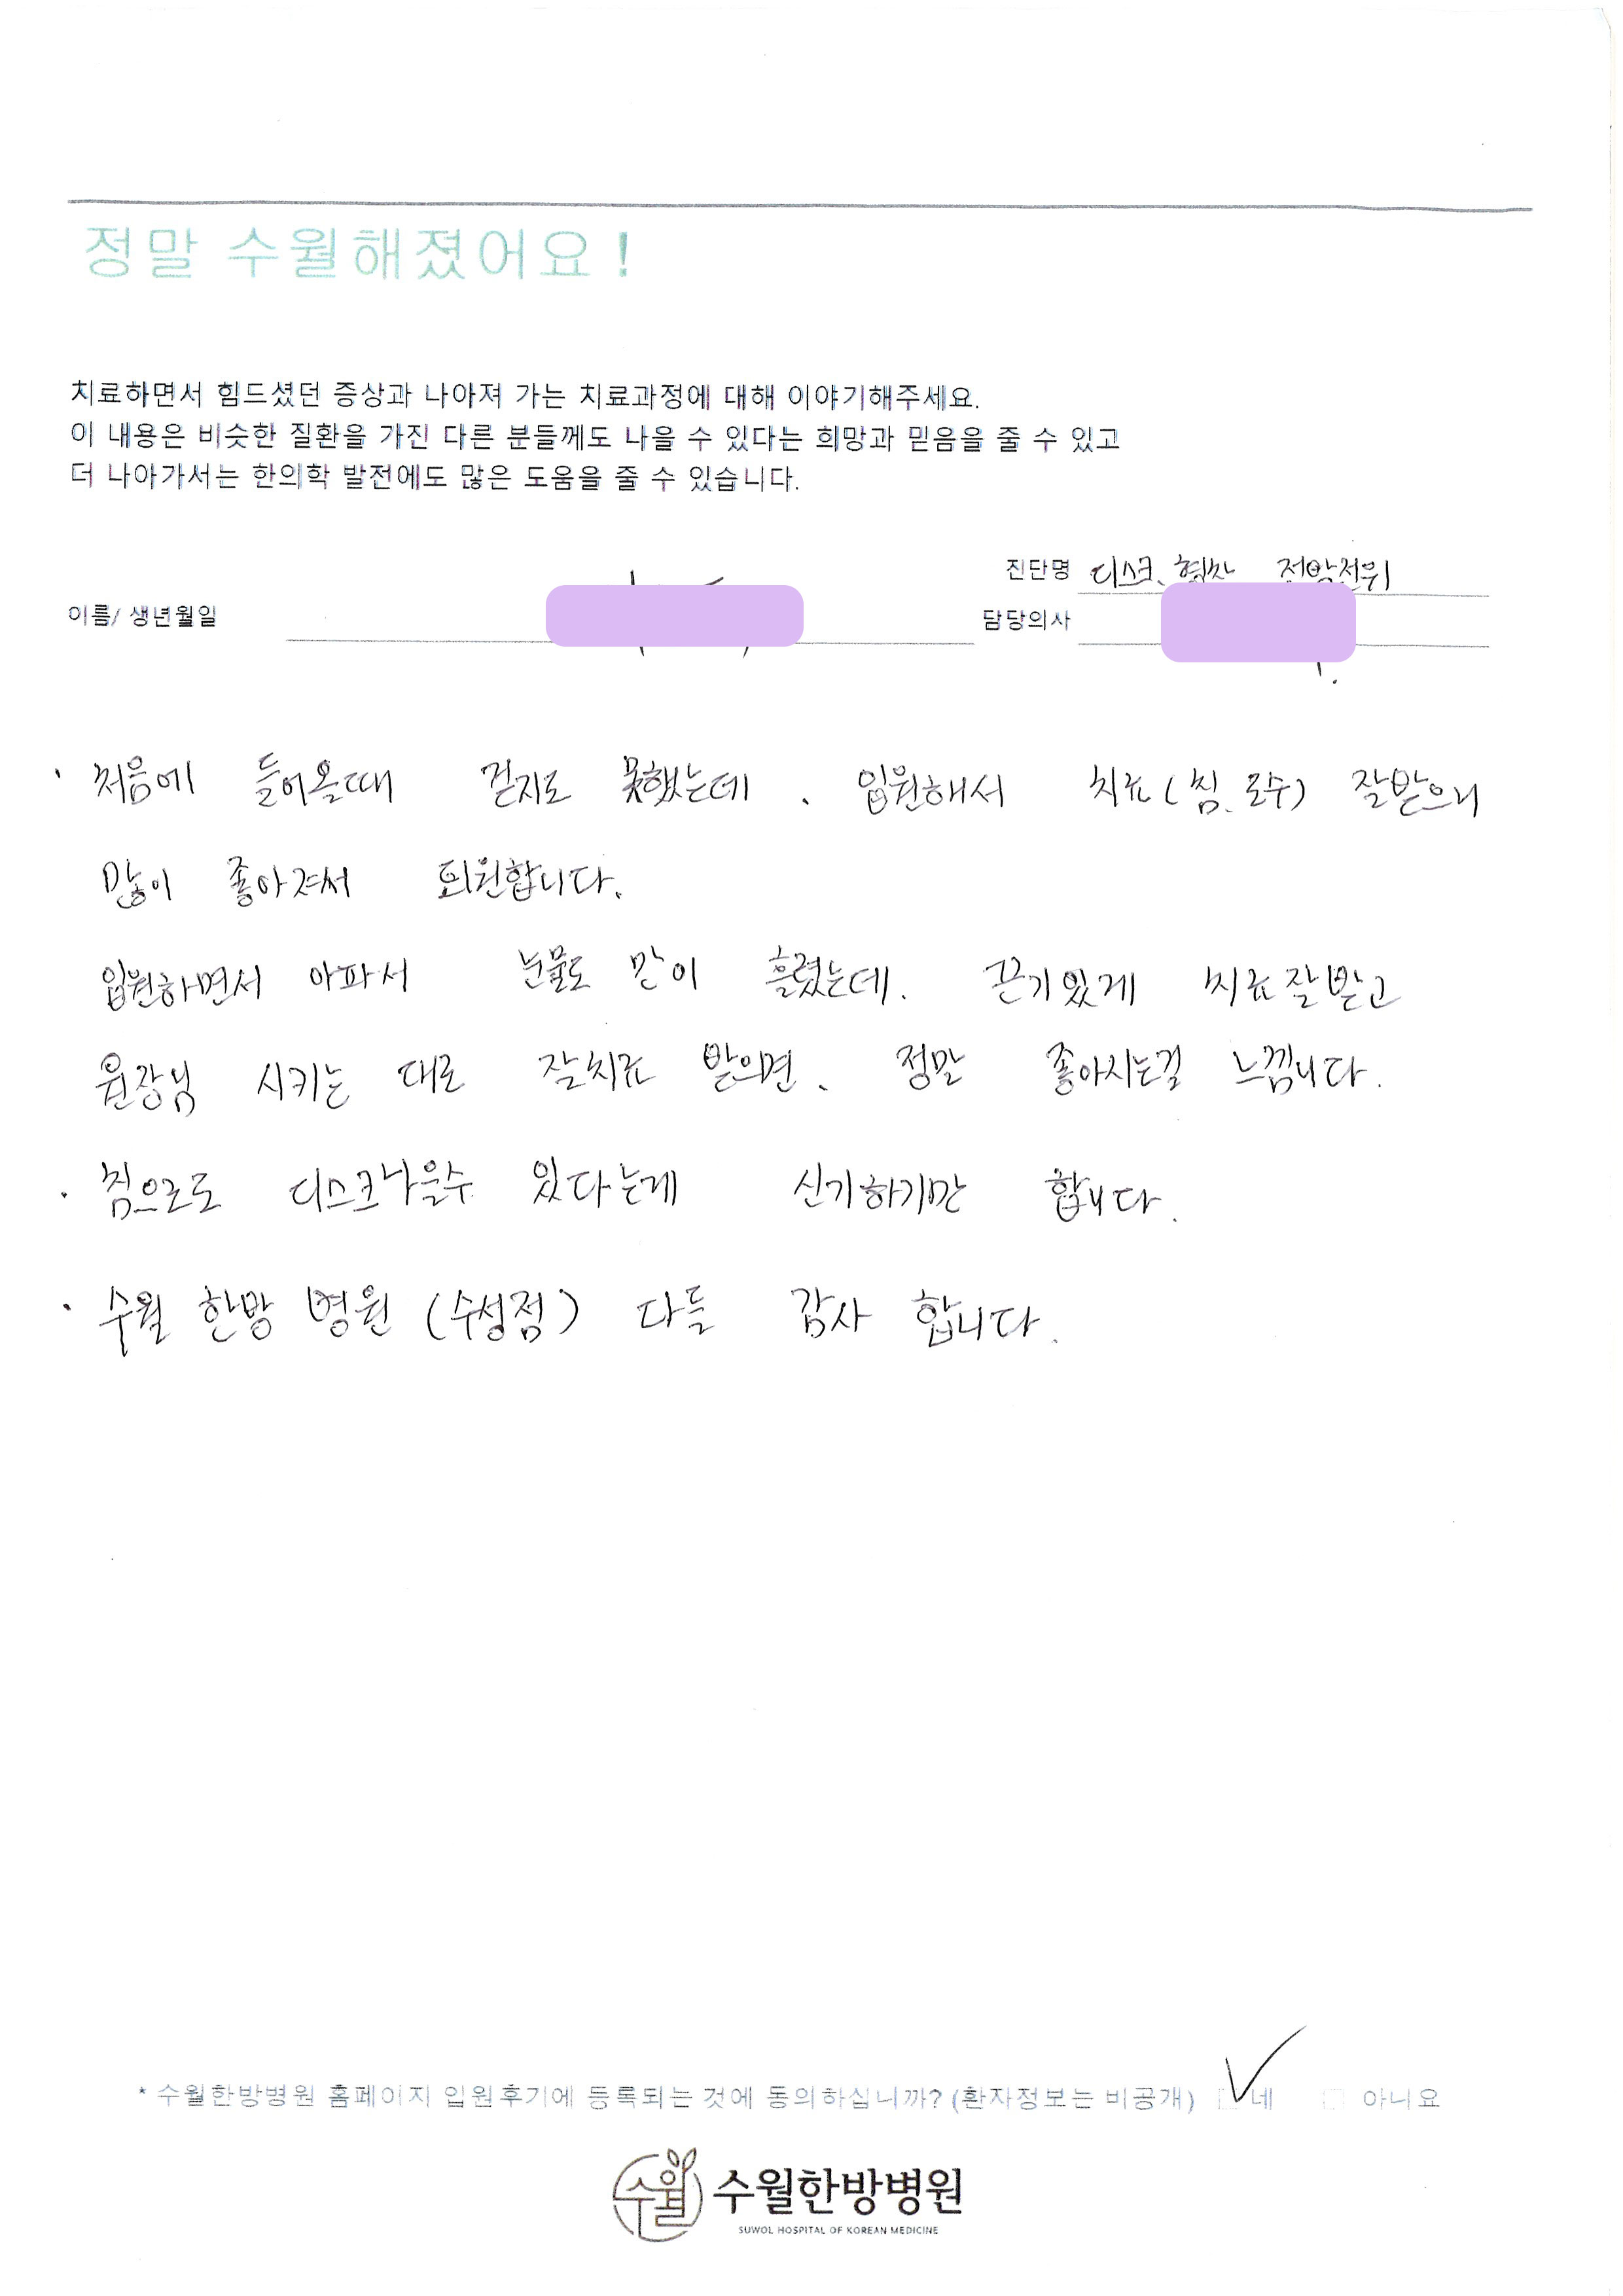 정말 수월해졌어요!
치료하면서 힘드셨던 증상과 나아져 가는 치료과정에 대해 이야기해주세요.
이 내용은 비슷한 질환을 가진 다른 분들께도 나을 수 있다는 희망과 믿음을 줄 수 있고
더 나아가서는 한의학 발전에도 많은 도움을 줄 수 있습니다.
진단명 디스크, 협착 전방전위
이름/ 생년월일
담당의사
· 처음에 들어올때 걷지도 못했는데. 입원해서 치료(침. 도수) 잘받으니
많이 좋아져서 퇴원합니다.
입원하면서 아파서 눈물도 많이 흘렸는데. 끈기있게 치료잘받고
원장님 시키는 대로 잘치료 받으면. 정말 좋아지는걸 느낍니다.
· 침으로도 디스크나을수 있다는게 신기하기만 합니다.
· 수월 한방 병원 (수성점) 다들 감사 합니다.
* 수월한방병원 홈페이지 입원후기에 등록되는 것에 동의하십니까? (환자정보는 비공개) 네 아니요
수월 수월한방병원
SUWOL HOSPITAL OF KOREAN MEDICINE